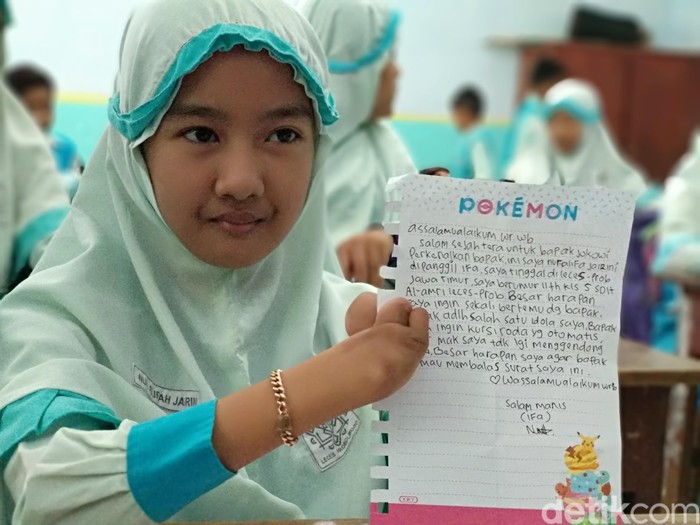 POKÉMON
assalamualaikum wr.wb
salam sejahtera untuk bapak Jokowi
Perkenalkan bapak, ini saya nuralifa Jarizni
dipanggil IFa, saya tinggal di leces-Prob
Jawa Timur, saya berumur 11th kls 5 SDIT
Al-amri leces-Prob Besar harapan
saya ingin sekali bertemu dg bapak.
adlh salah satu idola saya. Bapak
ingin kursi roda yg otomatis
mak saya tdk lgi menggendong
Besar harapan saya agar bapak
mau membalas surat saya ini.
♡ Wassalamualaikum wrb
Salam manis
(IFa)
JARIJ
detikcom